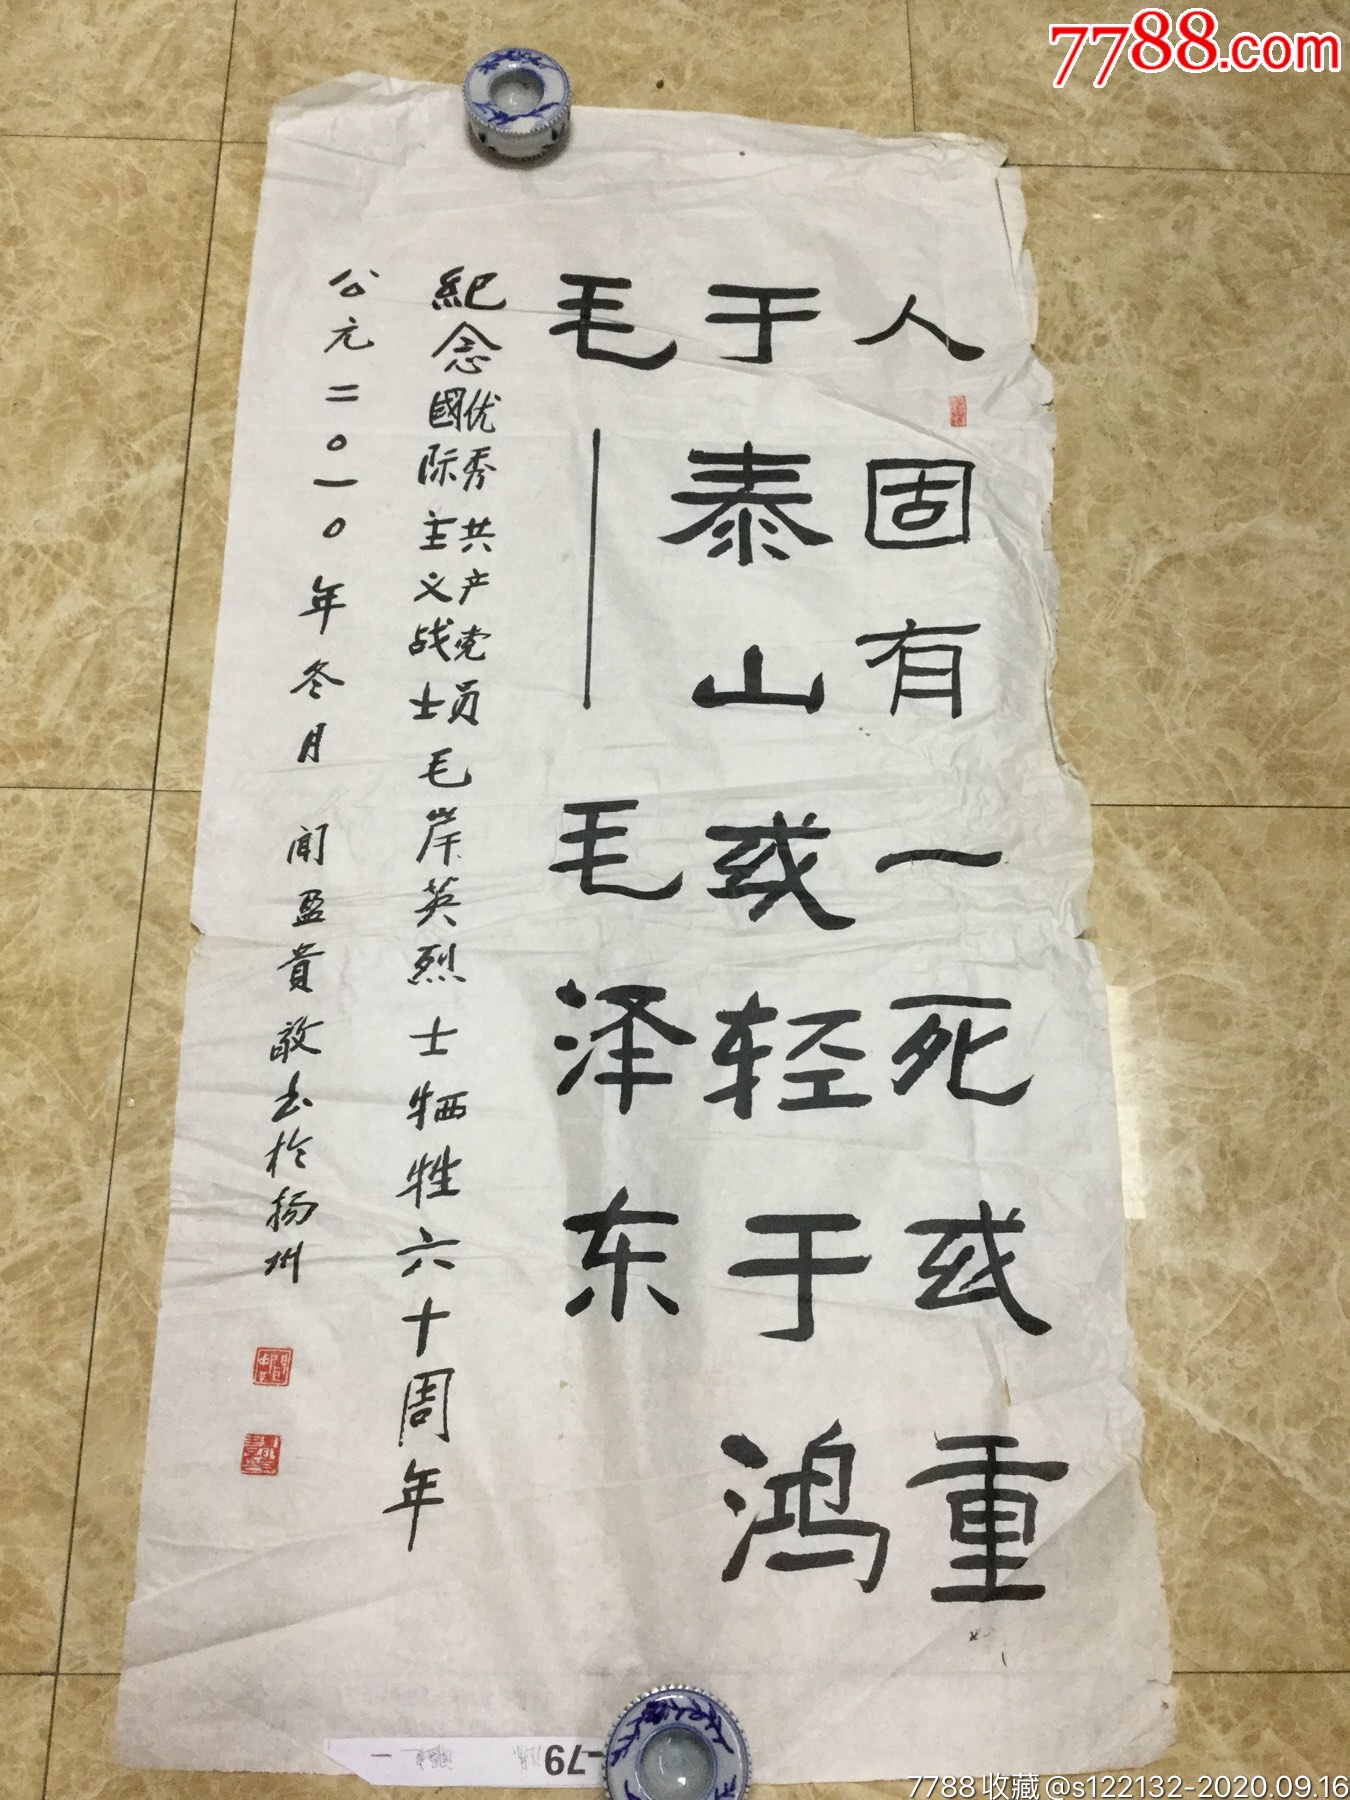 7788.com
人固有一死或重
于泰山或轻于鸿
毛——毛泽东
紀念優秀共产党员
國际主义战士毛岸英烈士牺牲六十周年
公元二〇一〇年冬月 闻盈貴敬书於扬州
-79
7788收藏@s122132-2020.09.16